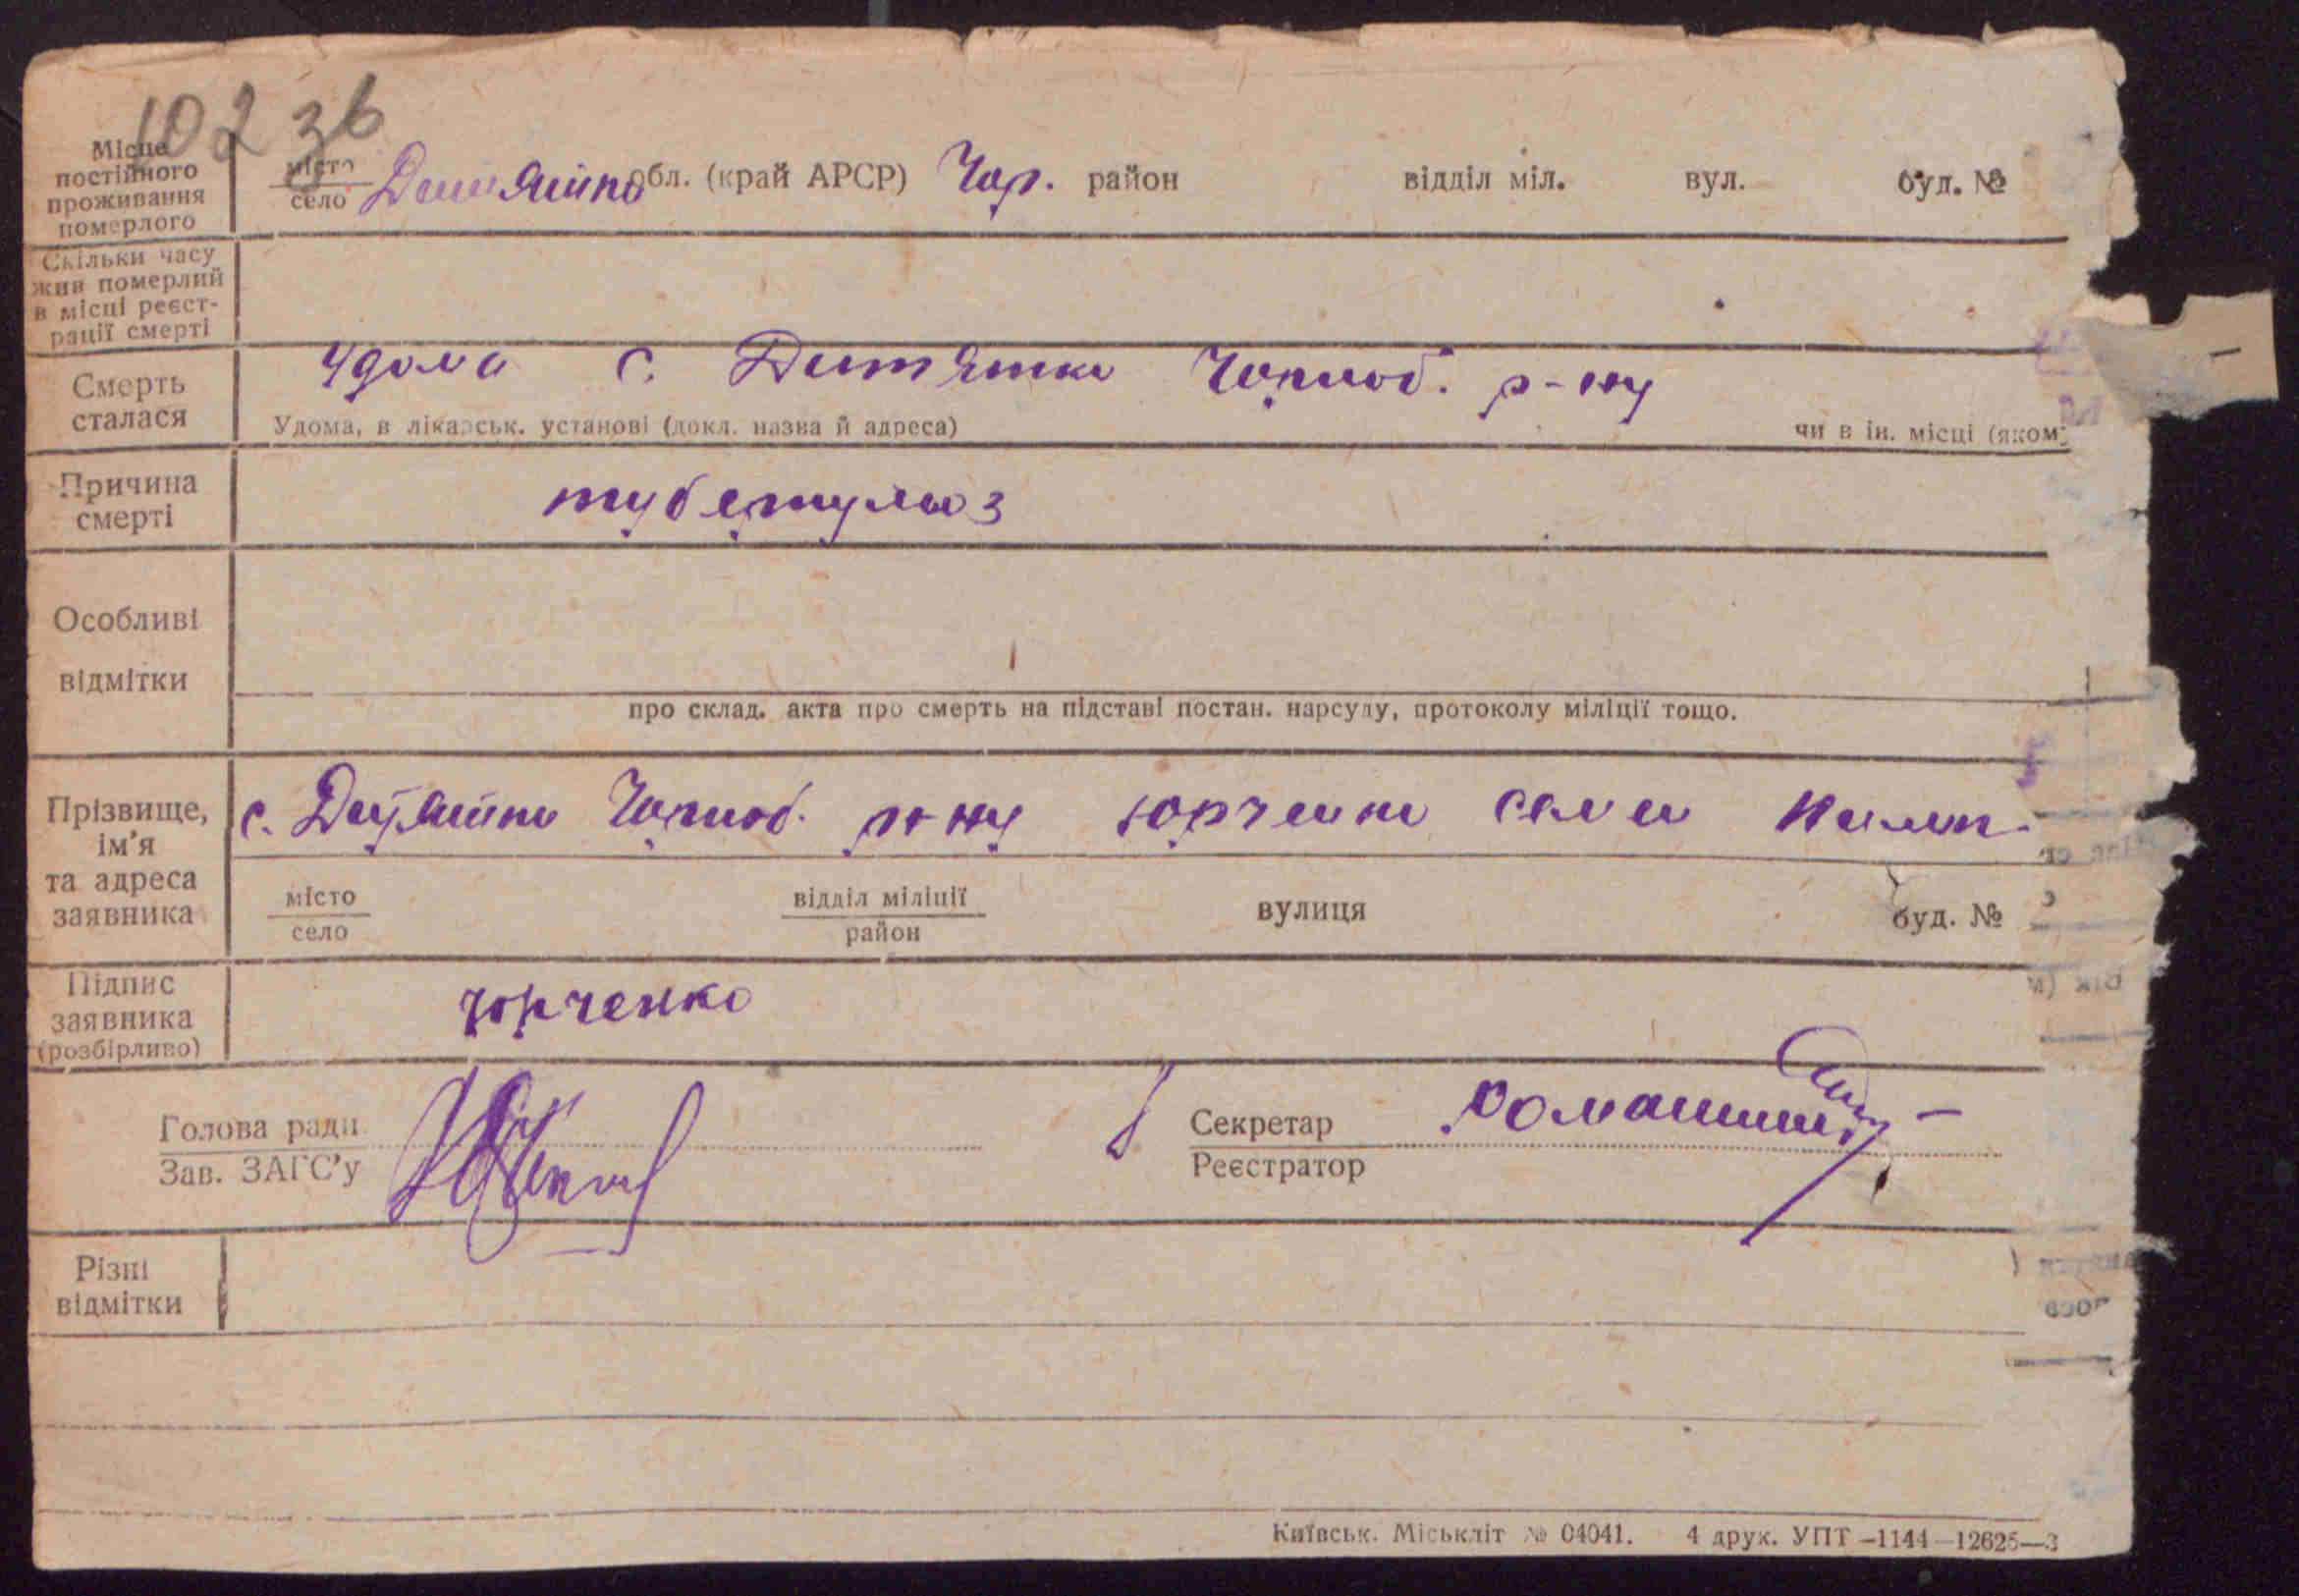 102 зв
Місце постійного проживання померлого
місто село Дитятки обл. (край АРСР) Чор. район відділ міл. вул. буд. №
Скільки часу жив померлий в місці реєстрації смерті
Смерть сталася
удома с. Дитятки Чорноб. р-ну
Удома, в лікарськ. установі (докл. назва й адреса) чи в ін. місці (яком
Причина смерті
туберкульоз
Особливі відмітки
про склад. акта про смерть на підставі постан. нарсуду, протоколу міліції тощо.
Прізвище, ім'я та адреса заявника
с. Дитятки Чорноб. р-ну Юрченко
місто село відділ міліції район вулиця буд. №
Підпис заявника (розбірливо)
Юрченко
Голова ради
Зав. ЗАГС'у
Секретар
Реєстратор
Різні відмітки
Київськ. Міськліт № 04041. 4 друк. УПТ –1144–12625–3